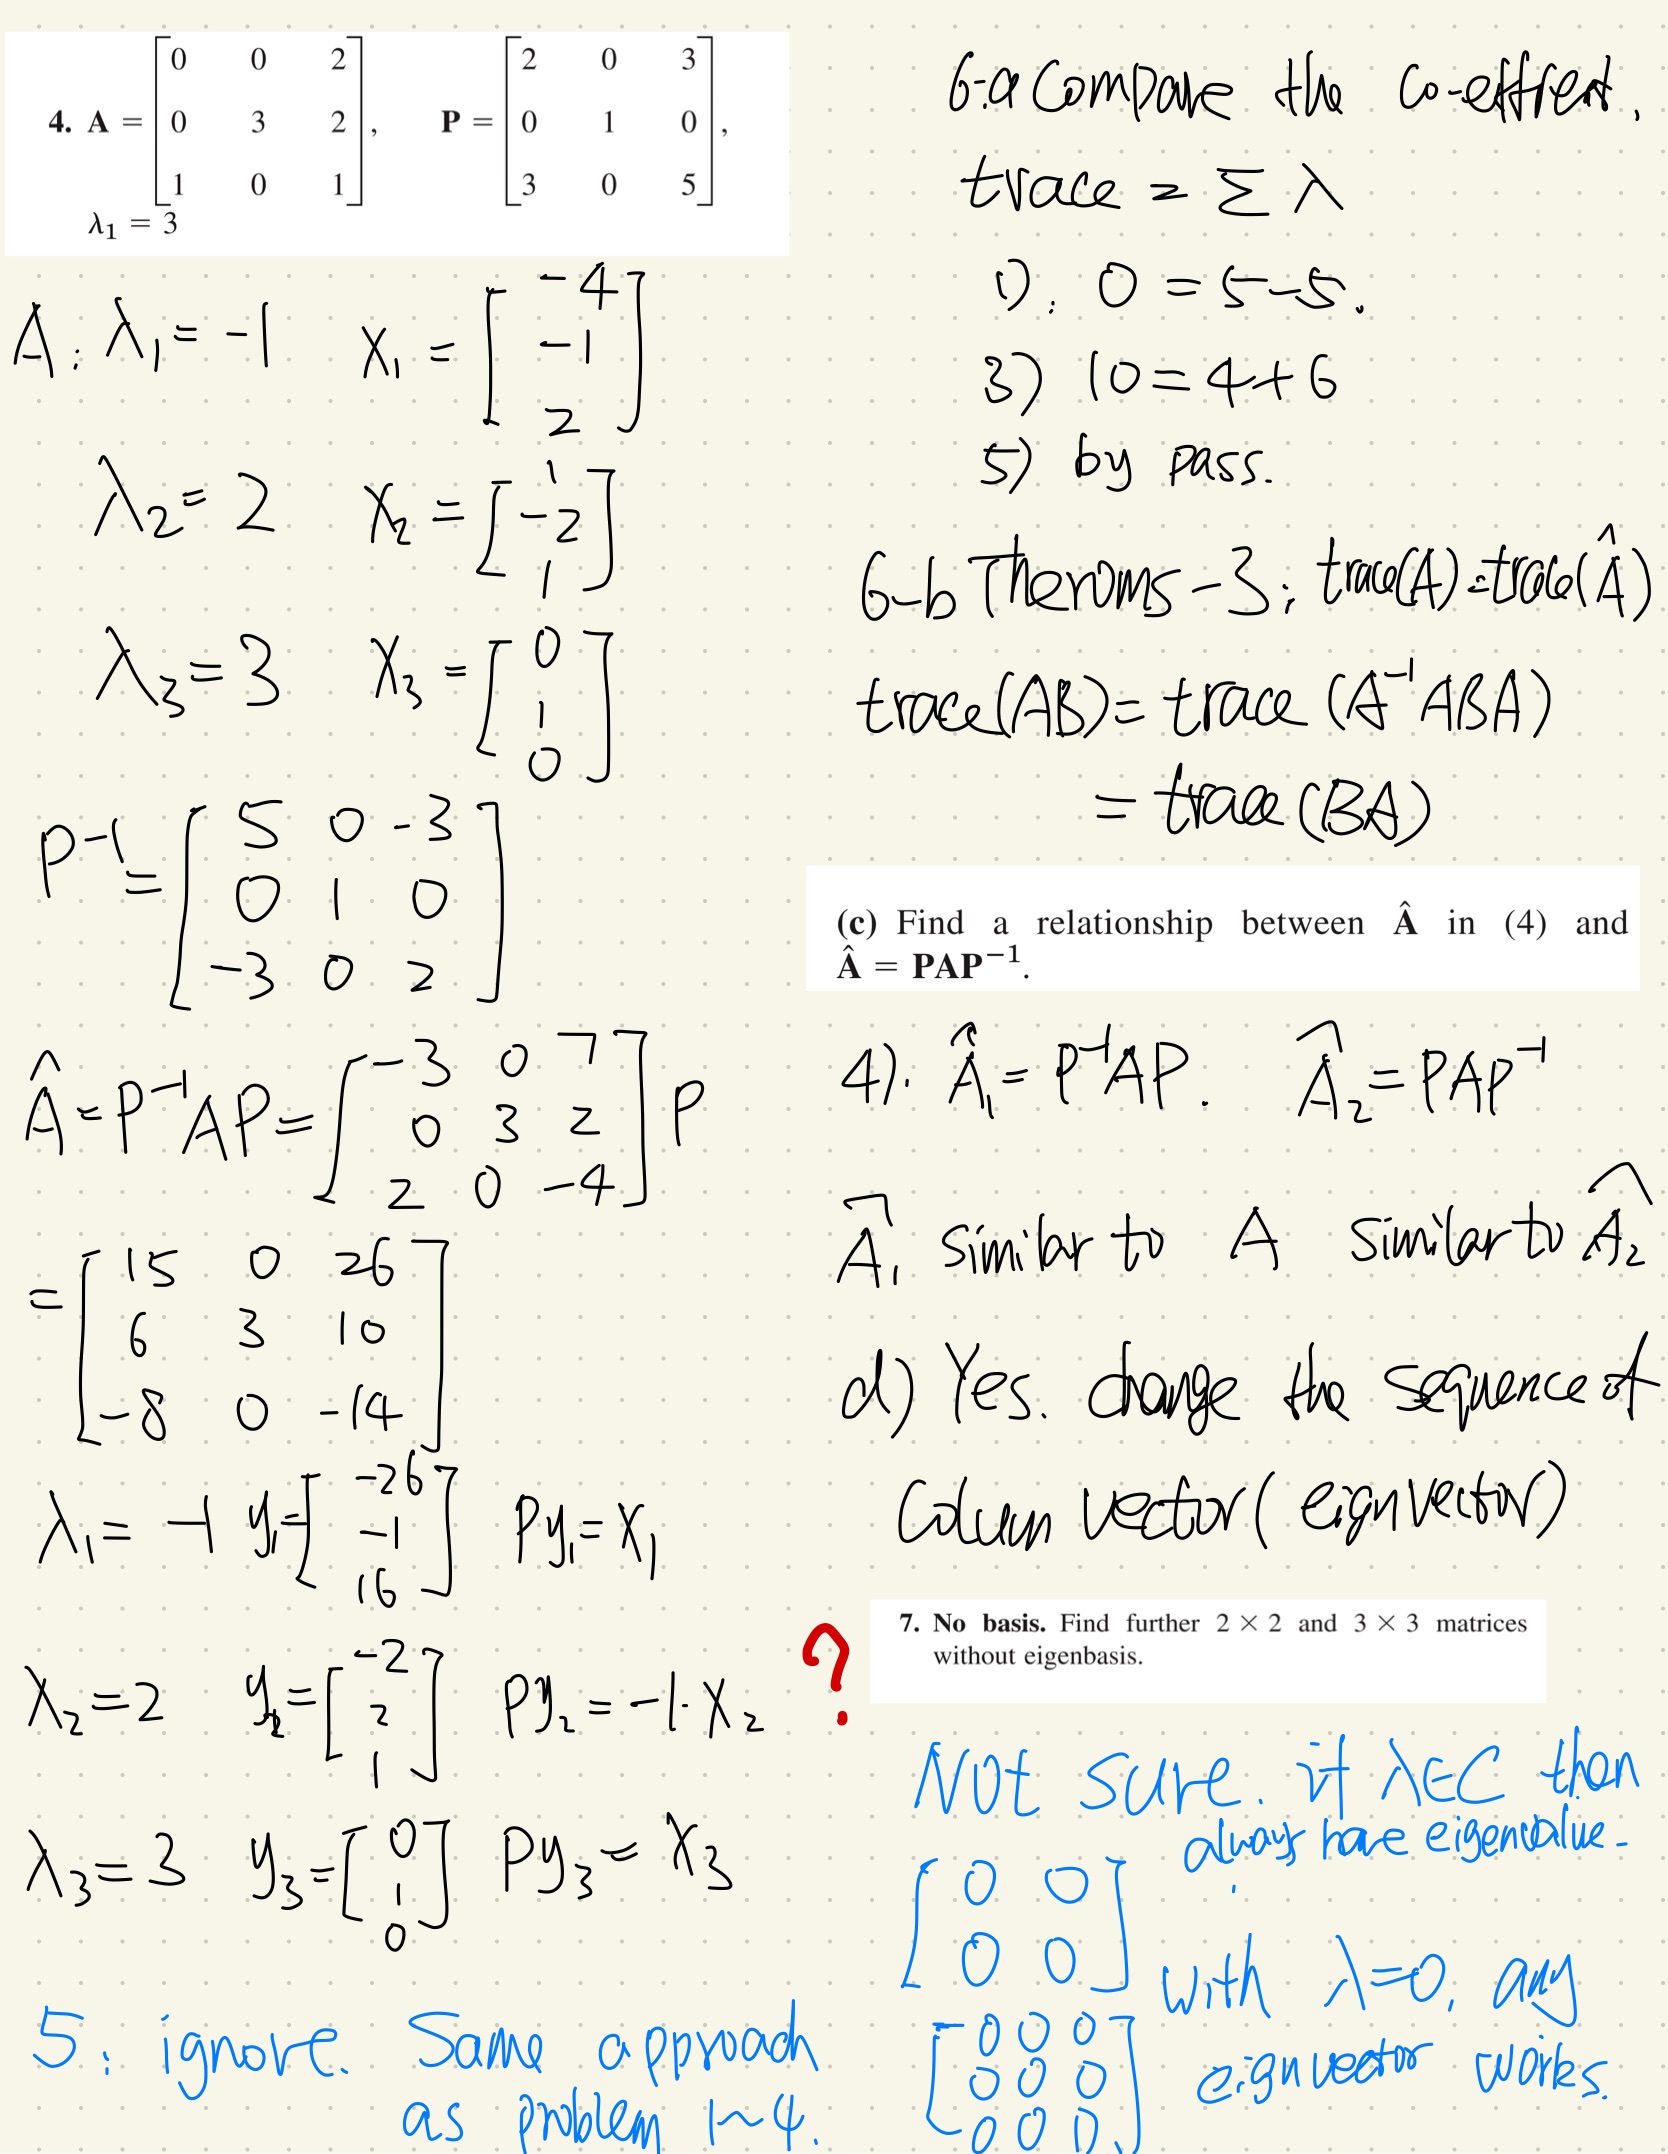 4. A = [0 0 2
0 3 2
1 0 1], P = [2 0 3
0 1 0
3 0 5],
λ₁ = 3
A: λ₁ = -1 X₁ = [-4
-1
2]
λ₂ = 2 X₂ = [1
-2
1]
λ₃ = 3 X₃ = [0
1
0]
P⁻¹ = [5 0 -3
0 1 0
-3 0 2]
Â = P⁻¹AP = [-3 0 7
0 3 2
2 0 -4] P
= [15 0 26
6 3 10
-8 0 -14]
λ₁ = -1 y₁ = [-26
-1
16] Py₁ = X₁
λ₂ = 2 y₂ = [-2
2
1] Py₂ = -1·X₂
λ₃ = 3 y₃ = [0
1
0] Py₃ = X₃
5: ignore. Same approach
as problem 1~4.
6-a Compare the co-effient.
trace = Σ λ
1): 0 = 5-5.
3) 10 = 4+6
5) by pass.
6-b Theroms-3: trace(A) = trace(Â)
trace(AB) = trace (A⁻¹ABA)
= trace (BA)
(c) Find a relationship between Â in (4) and
Â = PAP⁻¹.
4). Â₁ = P⁻¹AP. Â₂ = PAP⁻¹
Â₁ similar to A similar to Â₂
d) Yes. change the sequence of
Column vector ( eignvector)
?
7. No basis. Find further 2 × 2 and 3 × 3 matrices
without eigenbasis.
Not sure. if λ∈C then
always have eigenvalue.
[0 0
0 0] with λ=0, any
eignvector works.
[0 0 0
0 0 0
0 0 0]